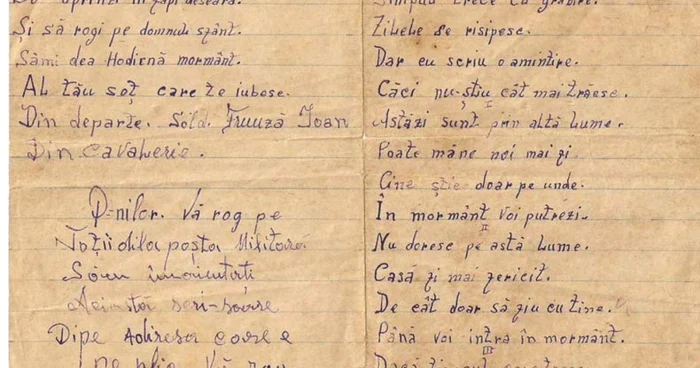 Și să rogi pe domnul sfânt.
Sămi dea Hodicnă mormânt.
Al tău soț care te iubose.
Din departe. Sold. Frunză Ioan
Din cavalerie.
D-nilor. Vă rog pe
Toții dila poșta Militară
Aciasta scri-soare
Dipe Adresa care e
Timpul trece cu grăbire.
Zilele se risipesc.
Dar eu scriu o amintire.
Căci nu-știu cât mai trăesc.
I
Astăzi sunt prin altă lume.
Poate mâne noi mai fi
Cine știe doar pe unde.
În mormânt voi putrezi.
II
Nu doresc pe astă lume.
Casă fi mai fericit.
De cât doar să fiu cu tine.
Până voi intra în mormânt.
III